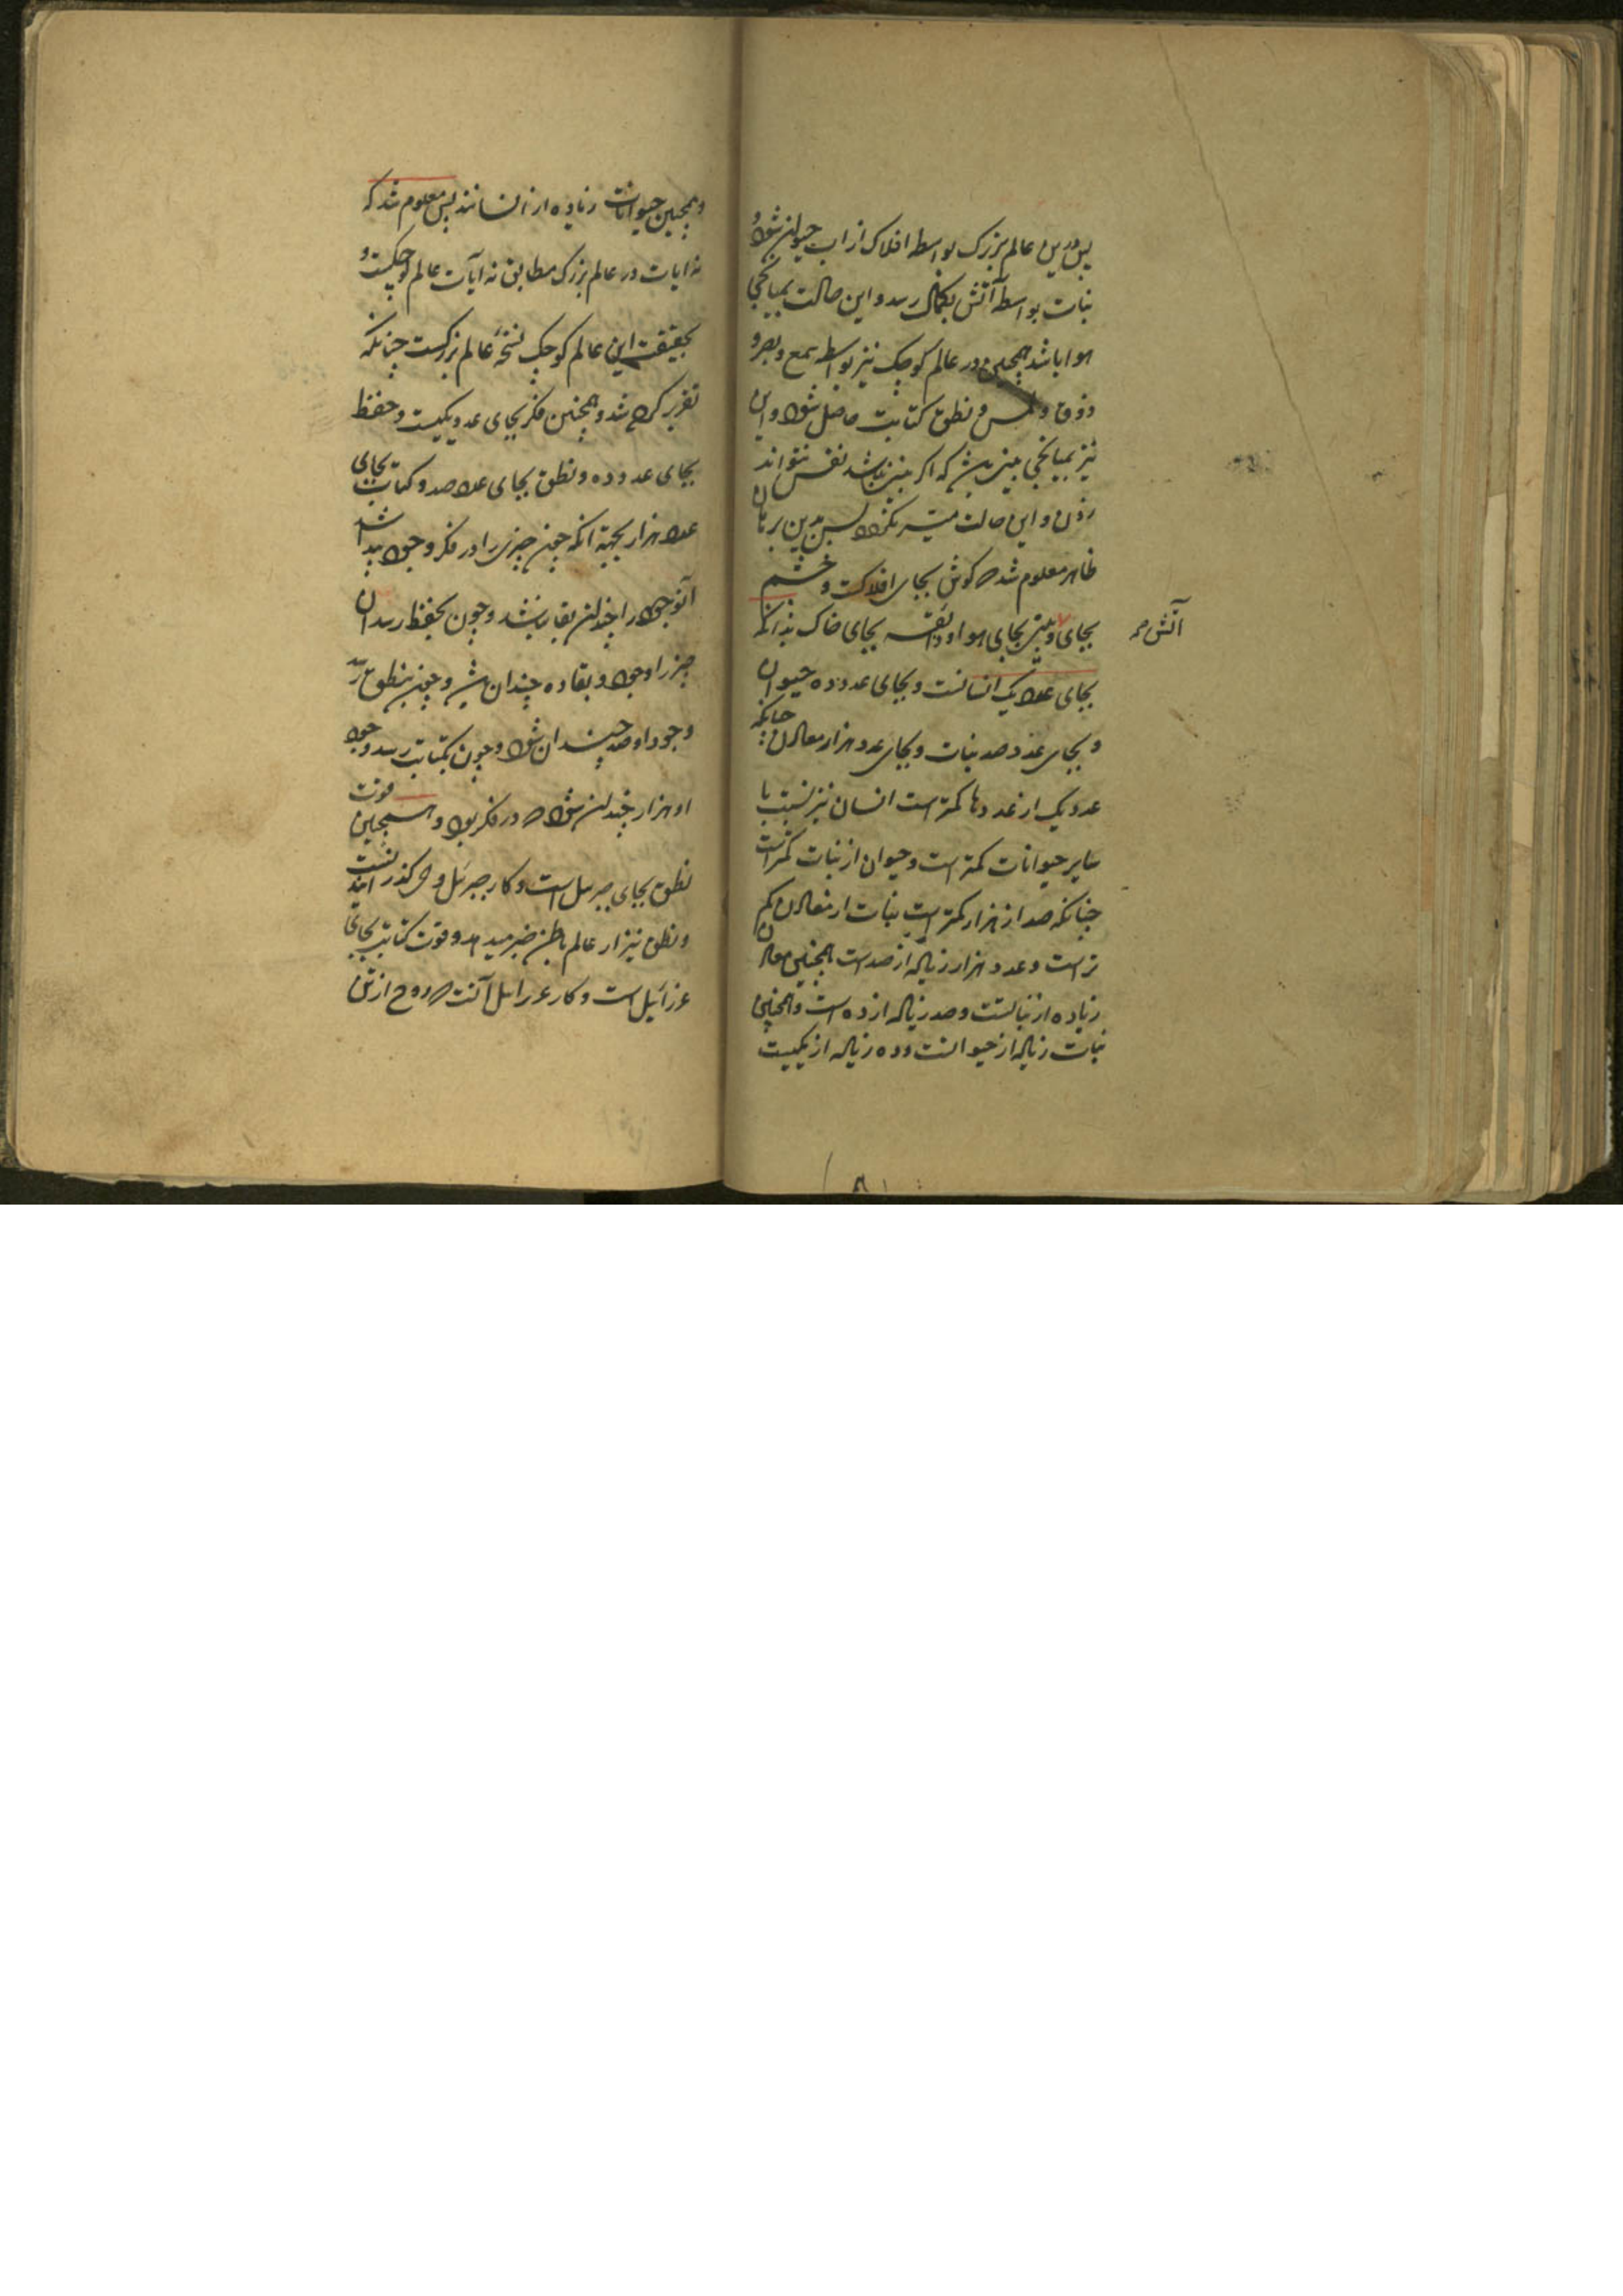 پس درین عالم بزرگ بواسطه افلاک از اب حیوان شود و
نبات بواسطه آتش بکمال رسد و این حالت بمیانجی
هوا باشد همچنین در عالم کوچک نیز بواسطه سمع و بصر و
ذوق و لمس و نطق کتابت حاصل شود و این
نیز بمیانجی بینی باشد که اگر بینی نباشد نفس نتواند
زدن و این حالت میسر نگردد پس بدین برهان
ظاهر معلوم شد که کوش بجای افلاکست و چشم
بجای و بینی بجای هوا و ذائقه بجای خاک بدانکه
آتش صح
بجای عدد یک انسانست و بجای عدد ده حیوان
و بجای عدد صد نبات و بجای عدد هزار معادن چنانکه
عدد یک از عددها کمترست انسان نیز نسبت با
سایر حیوانات کمترست و حیوان از نبات کمترست
چنانکه صد از هزار کمترست نبات از معادن کم
ترست و عدد هزار زیاده از صدست همچنین معادن
زیاده از نباتست و صد زیاده از ده است و همچنین
نبات زیاده از حیوانست و ده زیاده از یکیست
و همچنین حیوانات زیاده از انسانند پس معلوم شد که
نه ایات در عالم بزرک مطابق نه آیات عالم کوچکست و
بحقیقت این عالم کوچک نسخهٔ عالم بزرکست چنانکه
تقریر کرده شد و همچنین فکر بجای عدد یکیست و حفظ
بجای عدد ده و نطق بجای عدد صد و کتابت بجای
عدد هزار بجهة انکه چون چیزی را در فکر وجود پیدا شد
آنوجود را چندان بقا نباشد و چون بحفظ رسد ان
چیز را وجود و بقا ده چندان باشد و چون بنطق رسد
وجود او صد چندان شود و چون بکتابت رسد وجود
او هزار چندان شود که در فکر بود و همچنین قوت
نطق بجای جبرئیل است و کار جبرئیل وحی کذرانیدنست
و نطق نیز از عالم باطن خبر میدهد و قوت کتابت بجای
عزرائیل است و کار عزرائیل آنست که روح از تن